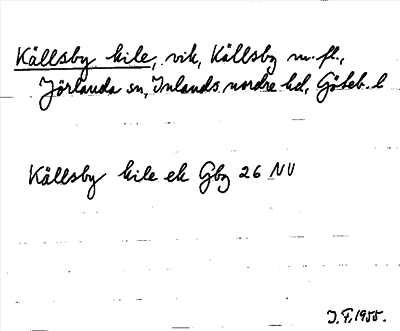 Källsby kile, vik, Källsby m. fl.,
Jörlanda sn, Inlands nordre hd, Göteb. l
Källsby kile ek Gbg 26 NV
I. F. 1955.